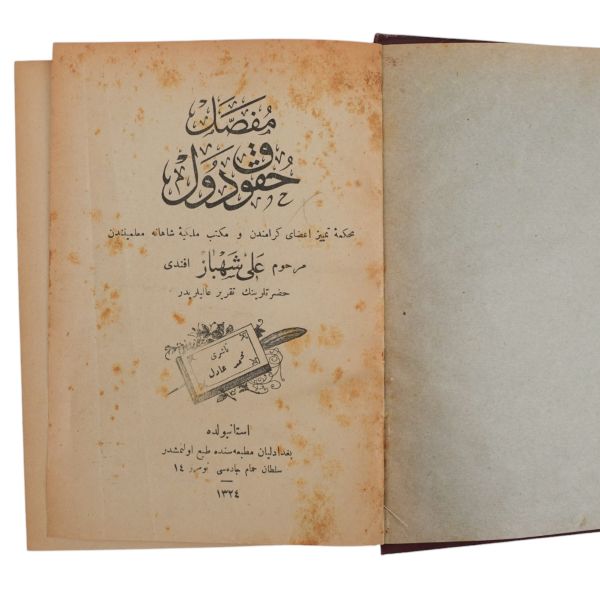 مفصل
حقوق دول
محكمهٔ تمییز اعضای كرامندن و مكتب ملكیهٔ شاهانه معلمیندن
مرحوم علی شهباز افندی
حضرتلرینك تقریر عالیلریدر
ناشری
محمد عادل
استانبولده
بغدادلیان مطبعه‌سنده طبع اولنمشدر
سلطان حمام جاده‌سی نومرو ١٤
١٣٢٤